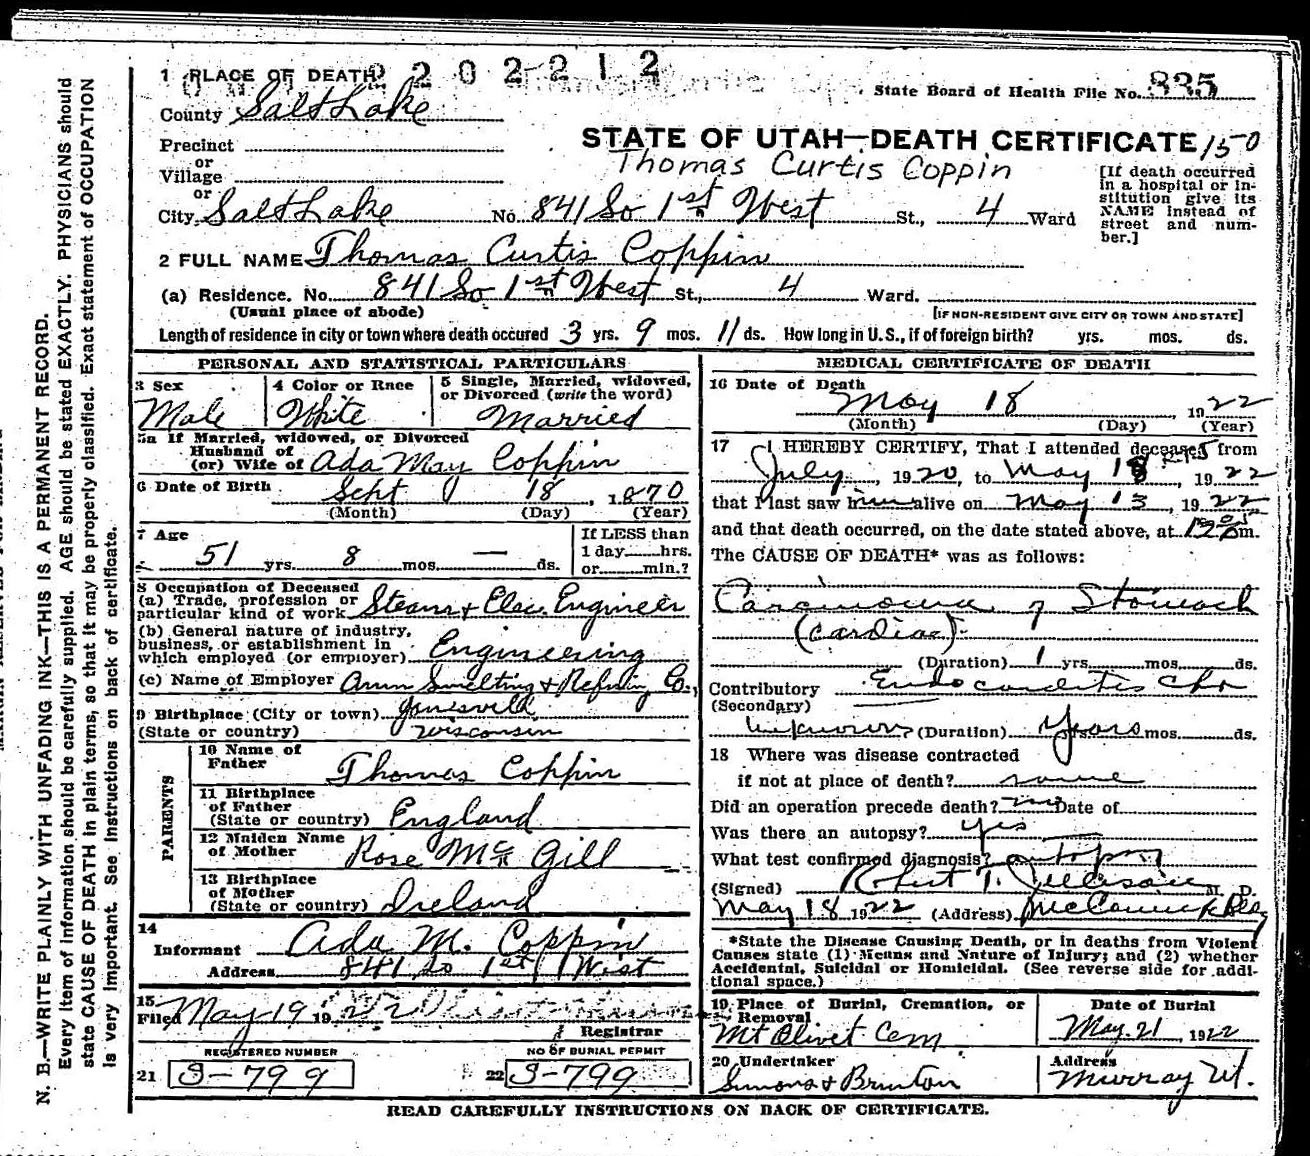 1 PLACE OF DEATH 2202212
State Board of Health File No. 835
County Salt Lake
STATE OF UTAH—DEATH CERTIFICATE 150
Precinct
or
Village
or
Thomas Curtis Coppin
[If death occurred in a hospital or institution give its NAME instead of street and number.]
City Salt Lake No. 841 So 1st West St., 4 Ward
2 FULL NAME Thomas Curtis Coppin
(a) Residence. No. 841 So 1st West St., 4 Ward.
(Usual place of abode) [IF NON-RESIDENT GIVE CITY OR TOWN AND STATE]
Length of residence in city or town where death occured 3 yrs. 9 mos. 11 ds. How long in U.S., if of foreign birth? yrs. mos. ds.
PERSONAL AND STATISTICAL PARTICULARS
3 Sex
Male
4 Color or Race
White
5 Single, Married, widowed, or Divorced (write the word)
Married
5a If Married, widowed, or Divorced
Husband of
(or) Wife of Ada May Coppin
6 Date of Birth Sept 18, 1870
(Month) (Day) (Year)
7 Age
51 yrs. 8 mos. — ds.
If LESS than
1 day hrs.
or min.?
8 Occupation of Deceased
(a) Trade, profession or
particular kind of work Steam & Elec. Engineer
(b) General nature of industry,
business, or establishment in
which employed (or employer) Engineering
(c) Name of Employer Am Smelting & Refining Co.,
9 Birthplace (City or town) Janesville
(State or country) Wisconsin
PARENTS
10 Name of
Father Thomas Coppin
11 Birthplace
of Father
(State or country) England
12 Maiden Name
of Mother Rose McGill
13 Birthplace
of Mother
(State or country) Ireland
14
Informant Ada M. Coppin
Address 841 So 1st West
15
Filed May 19 19 22
Registrar
REGISTERED NUMBER
21 S-799
NO OF BURIAL PERMIT
22 S-799
MEDICAL CERTIFICATE OF DEATH
16 Date of Death
May 18, 1922
(Month) (Day) (Year)
17 I HEREBY CERTIFY, That I attended deceased from
July, 1920, to May 18, 1922
that I last saw him alive on May 13, 1922
and that death occurred, on the date stated above, at m.
The CAUSE OF DEATH* was as follows:
Carcinoma of Stomach
(cardiac)
(Duration) 1 yrs. mos. ds.
Contributory Endocarditis Chr
(Secondary)
unknown (Duration) Years mos. ds.
18 Where was disease contracted
if not at place of death? same
Did an operation precede death? no Date of
Was there an autopsy? yes
What test confirmed diagnosis? autopsy
(Signed) Robert T. M. D.
May 18 1922 (Address) McCornick Bldg
*State the Disease Causing Death, or in deaths from Violent
Causes state (1) Means and Nature of Injury; and (2) whether
Accidental, Suicidal or Homicidal. (See reverse side for additional space.)
19 Place of Burial, Cremation, or
Removal
Mt Olivet Cem
Date of Burial
May 21, 1922
20 Undertaker
Simons & Brunton
Address
Murray Ut.
READ CAREFULLY INSTRUCTIONS ON BACK OF CERTIFICATE.
N. B.—WRITE PLAINLY WITH UNFADING INK—THIS IS A PERMANENT RECORD.
Every item of information should be carefully supplied. AGE should be stated EXACTLY. PHYSICIANS should
state CAUSE OF DEATH in plain terms, so that it may be properly classified. Exact statement of OCCUPATION
is very important. See instructions on back of certificate.